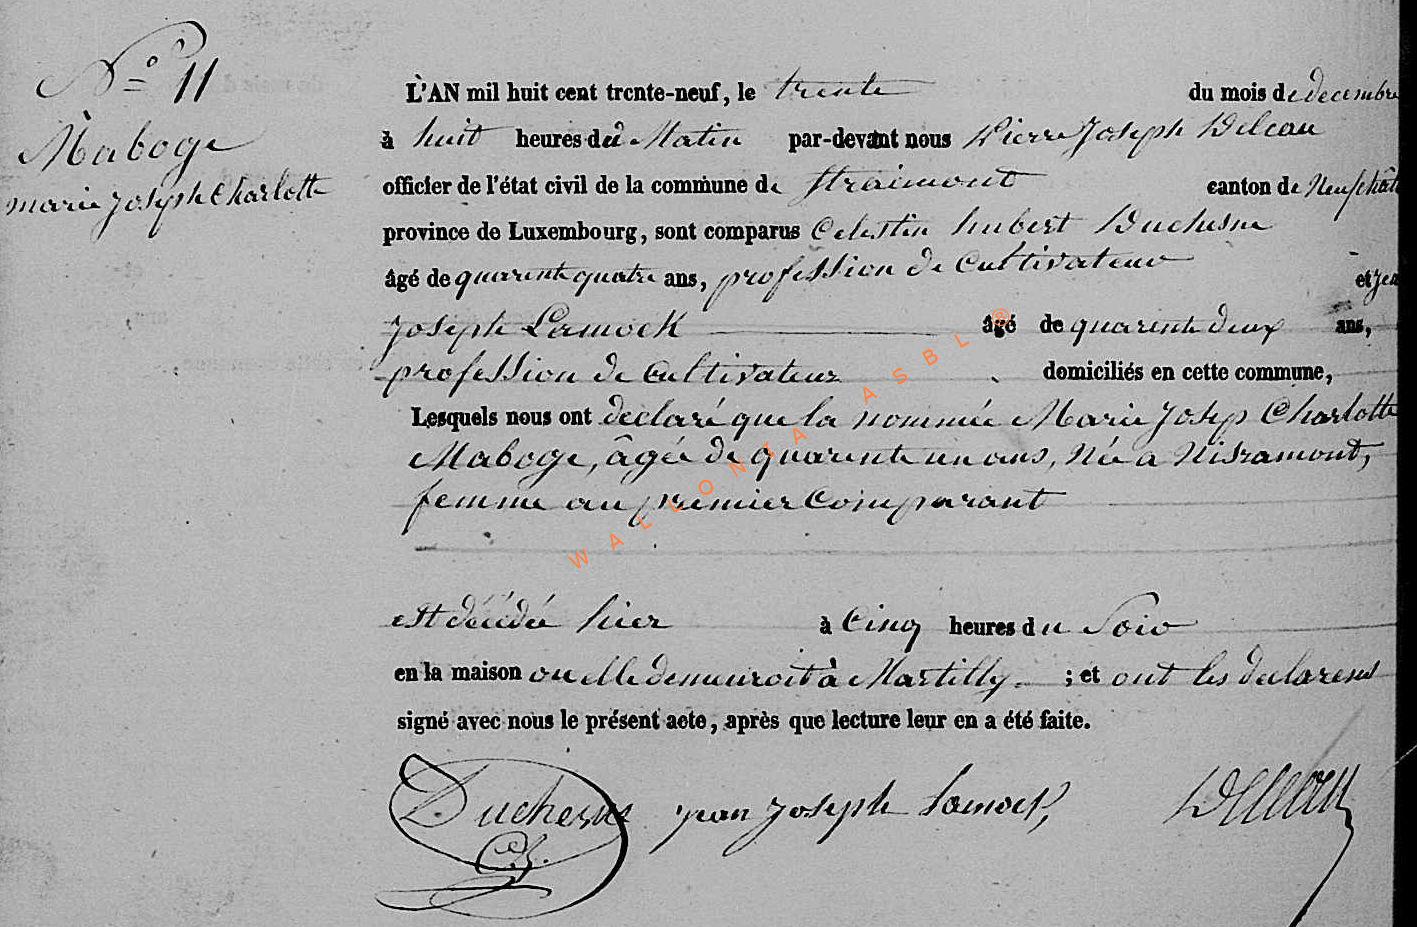 N° 11
Maboge
marie Joseph Charlotte
L'AN mil huit cent trente-neuf, le trente du mois de decembre
à huit heures du Matin par-devant nous Pierre Joseph Deleau
officier de l'état civil de la commune de Straimont canton de Neufchât
province de Luxembourg, sont comparus Celestin hubert Duchesne
âgé de quarente quatre ans, profession de Cultivateur et jea
Joseph Lamock âgé de quarente deux ans,
profession de Cultivateur domiciliés en cette commune,
Lesquels nous ont declaré que la nommée Marie Josep Charlotte
Maboge, âgée de quarente un ans, Née a Nisramont,
femme au premier Comparant
est décédée hier à Cinq heures du Soir
en la maison ou elle demeuroit à Martilly ; et ont les declarens
signé avec nous le présent acte, après que lecture leur en a été faite.
Duchesne jean Joseph Lamock Deleau
C.h.
WALLONIA ASBL ®